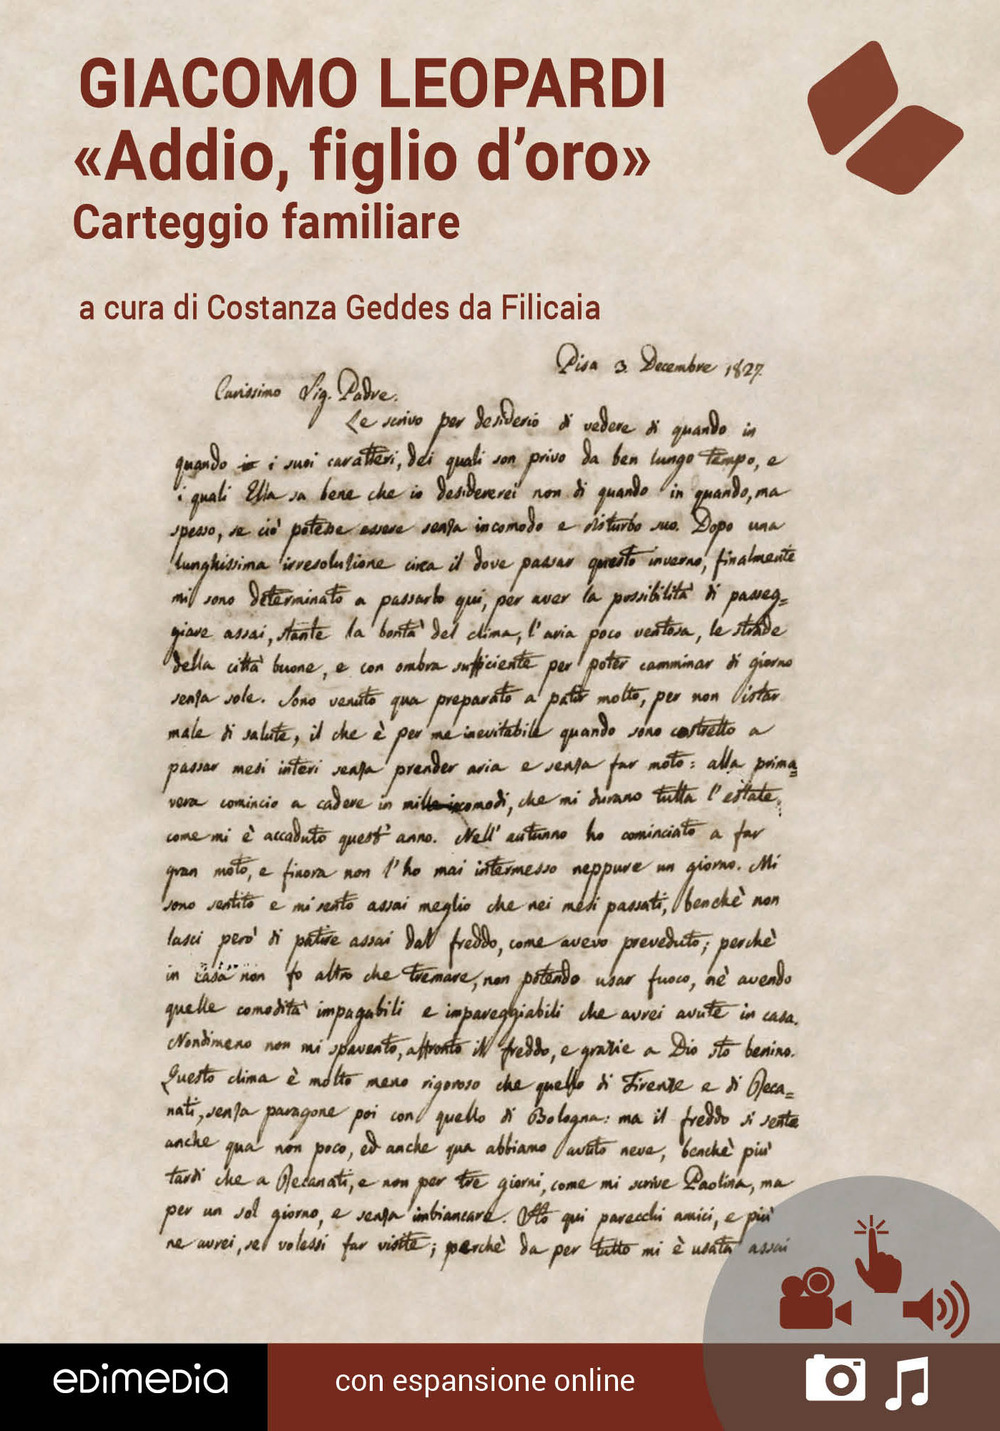 GIACOMO LEOPARDI
«Addio, figlio d'oro»
Carteggio familiare
a cura di Costanza Geddes da Filicaia
Pisa 3. Decembre 1827.
Carissimo Sig. Padre.
Le scrivo per desiderio di vedere di quando in
quando i suoi caratteri, dei quali son privo da ben lungo tempo, e
i quali Ella sa bene che io desidererei non di quando in quando, ma
spesso, se ciò potesse essere senza incomodo e disturbo suo. Dopo una
lunghissima irresoluzione circa il dove passar questo inverno, finalmente
mi sono determinato a passarlo qui, per aver la possibilità di passeg=
giare assai, stante la bontà del clima, l'aria poco ventosa, le strade
della città buone, e con ombra sufficiente per poter camminar di giorno
senza sole. Sono venuto qua preparato a patir molto, per non istar
male di salute, il che è per me inevitabile quando sono costretto a
passar mesi interi senza prender aria e senza far moto: alla prima=
vera comincio a cadere in mille incomodi, che mi durano tutta l'estate,
come mi è accaduto quest'anno. Nell'autunno ho cominciato a far
gran moto, e finora non l'ho mai intermesso neppure un giorno. Mi
sono sentito e mi sento assai meglio che nei mesi passati, benchè non
lasci però di patire assai dal freddo, come avevo preveduto; perchè
in casa non fo altro che tremare, non potendo usar fuoco, nè avendo
quelle comodità impagabili e impareggiabili che avrei avute in casa.
Nondimeno non mi spavento, affronto il freddo, e grazie a Dio sto benino.
Questo clima è molto meno rigoroso che quello di Firenze e di Reca=
nati, senza paragone poi con quello di Bologna: ma il freddo si sente
anche qua non poco, ed anche qua abbiamo avuto neve, benchè più
tardi che a Recanati, e non per tre giorni, come mi scrive Paolina, ma
per un sol giorno, e senza imbiancare. Ho qui parecchi amici, e più
ne avrei, se volessi far visite; perchè da per tutto mi è usata assai
edimedia
con espansione online